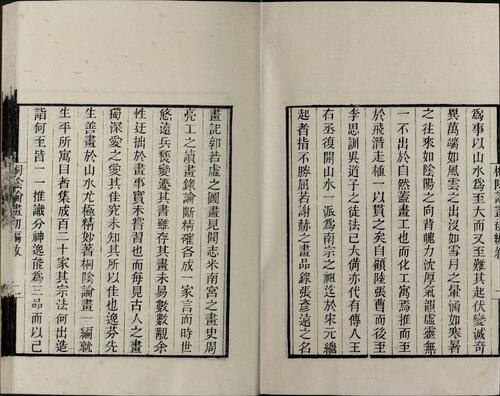 為事以山水為至大而又至難其起伏變滅奇
異萬端如風雲之出沒如雪月之暈涵如寒暑
之往來如陰陽之向背魄力沈厚氣韻虛靈無
一不出於自然蓋畫工也而化工寓焉推而至
於飛潛走植一以貫之矣自顧陸張曹而後至
李思訓吳道子之徒法已大備亦代有傳人王
右丞復開山水一派為南宗之祖迄於宋元繼
起者指不勝屈若謝赫之畫品錄張彥遠之名
畫記郭若虛之圖畫見聞志米南宮之畫史周
亮工之讀畫錄論斷精確各成一家言而時世
悠遠兵燹變遷其書雖存其畫未易數數覯余
性迂拙於畫事實未嘗習也而每見古人之畫
獨深愛之愛其佳究未知其所以佳也逸芬先
生善畫於山水尤極精妙著桐陰論畫一編就
生平所寓目者集成百二十家其宗法何出造
詣何至皆一一推識分神逸能為三品而以己
桐陰論畫初編敘